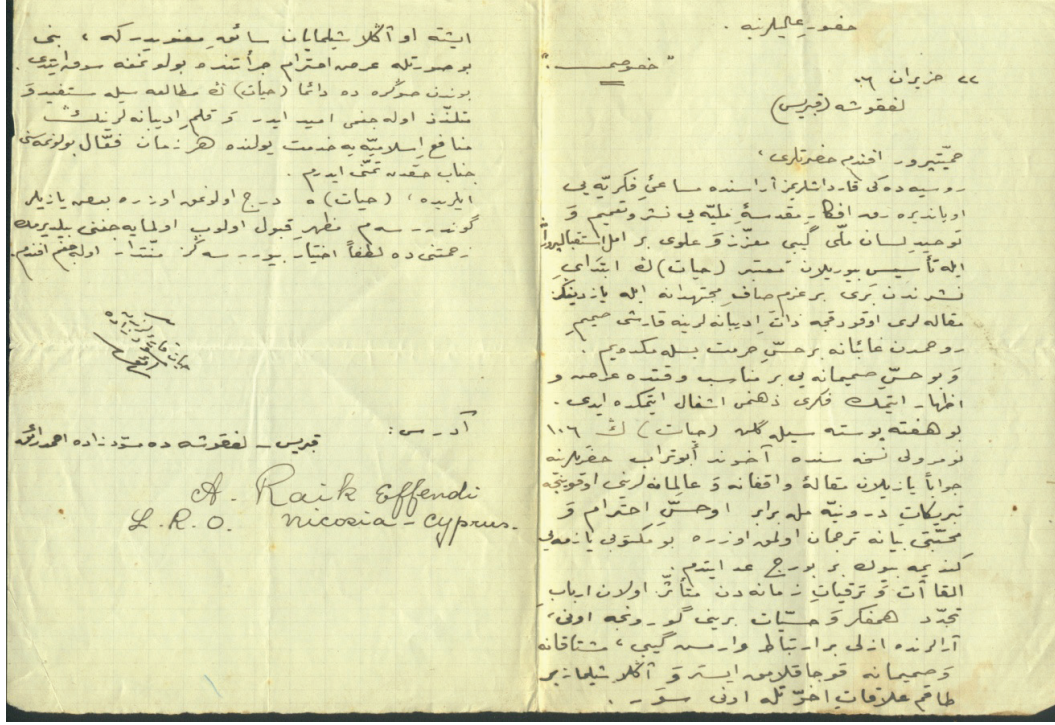 حضور عاليلرينه .
"خصوصى"
٢٢ حزيران ٠٦
لفقوشه (قبريس)
حميتپرور افندم حضرتلرى ،
روسيه ده كى قارداشلريمز آراسنده مساعئ فكريّه يى
اوياندیره رق افكار مقدسۀ ملّيه يى نشر و تعميم وَ
توحيد لسان ملّى گيبى معزّز وَ علوى بر امل استقبالپرورانه
ايله تأسيس بيوريلان معتبر (حيات) ڭ ابتداى
نشرندن برى بر عزم صاف مجتهدانه ايله يازديغكز
مقاله لرى اوقودقجه ذات اديبانه لرينه قارشى صميم
روحمدن غائبانه بر حسّ حرمت بسله مكده يم .
وَ بو حسّ صميمانه يى بر مناسب وقتده عرض و
اظهار ايتمك فكرى ذهنمى اشغال ايتمكده ايدى .
بو هفته پوسته سيله گلن (حيات) ڭ ١٠٦
نومرولى نسخه سنده آخوند أبوتراب حضرتلرينه
جواباً يازيلان مقالۀ واقفانه وَ عالمانه لرينى اوقوينجه
تبريكات درونيّه مله برابر او حسّ احترام وَ
محبّتمى بيانه ترجمان اولمق اوزره بو مكتوبى يازمه يى
كنديمه بيوك بر بورج عد ايتدم .
القاآت وَ ترقيات زمانه دن متأثر اولان ارباب
تجدّد همفكر وَ حسّيات برينى گورونجه اونى ،
آرالرنده ازلى بر ارتباط وارمش گيبى ، مشتاقانه
وَ صميمانه قوجاقلامق ايستر وَ آڭلاشيلماز بر
طاقم علاقات اخوّتله اونى سوَر .
ايشته او آڭلاشيلمايان سائق معنويدر كه ، بنى
بو صورتله عرض احترام جرأتنده بولونمغه سوق ايتدى .
بوندن صوڭره ده دائما (حيات) ڭ مطالعه سيله مستفيد وَ
متلذّذ اوله جغمى اميد ايدر وَ قلم اديبانه لرينڭ
منافع اسلاميّه يه خدمت يولنده هر زمان فعّال بولونمه سنى
جناب حقدن تمنّى ايدرم .
ايلريده ، (حيات) ه درج اولونمق اوزره بعض يازيلر
گوندررسه م مظهر قبول اولوب اولمايه جغنى بيلديرمك
زحمتنى ده لطفاً اختيار بيوررسه ڭز منّتدار اوله جغم افندم .
آدرس :
قبريس - لفقوشه ده مسعود زاده احمد رائق
A. Raik Effendi
L. R. O. Nicosia - Cyprus.